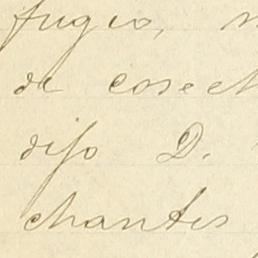 fugio,
de cosech
dijo D.
chantes